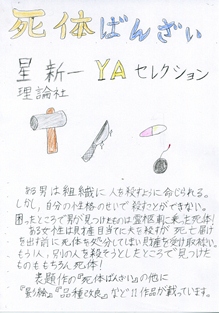 死体ばんざい
星 新一 YAセレクション
理論社
ある男は組織に人を殺すように命じられる。
しかし、自分の性格のせいで殺すことができない。
困ったところで男が見つけたものは霊柩車に乗った死体!
ある女性は財産目当てに夫を殺すが 死亡届け
を出す前に死体を処分してしまい財産を受け取れない。
もう1人、別の人を殺そうとしたところで見つけた
ものももちろん死体!
表題作の『死体ばんざい』の他に
『影絵』『品種改良』など11作品が載っています。